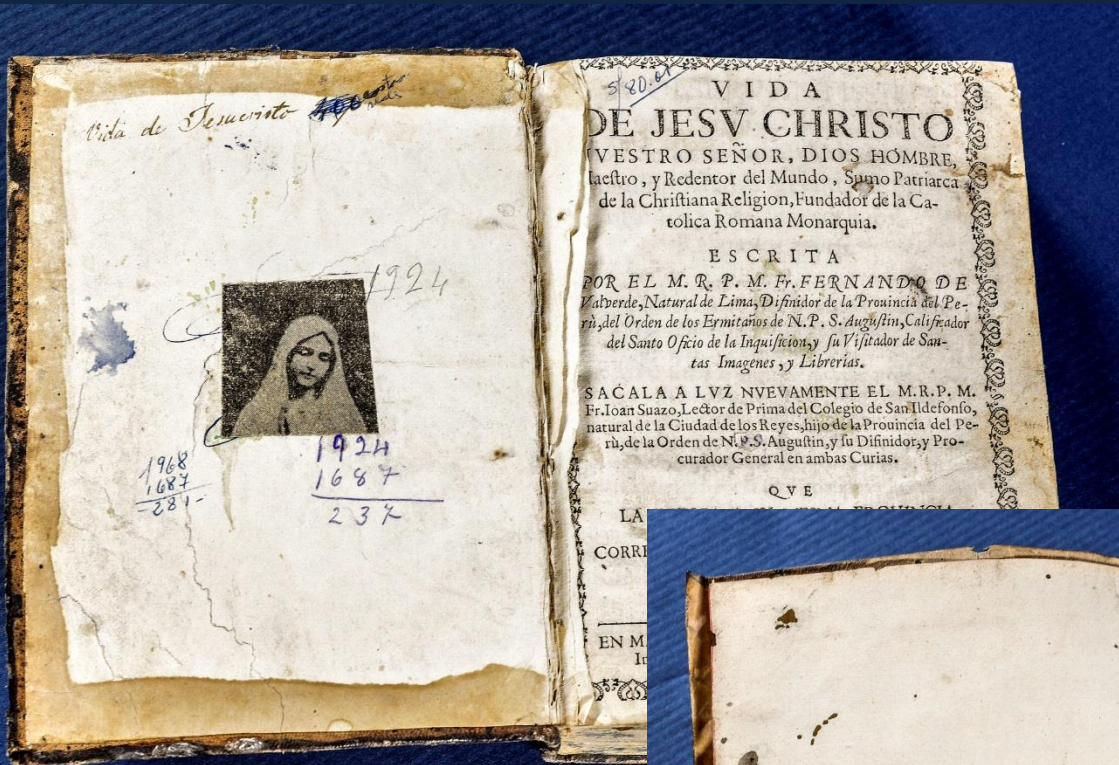 Vida de Jesucristo
1924
1924
1687
237
1968
1687
281
$ 80.01
VIDA
DE JESV CHRISTO
VESTRO SEÑOR, DIOS HOMBRE,
aeſtro, y Redentor del Mundo, Sumo Patriarca
de la Chriſtiana Religion, Fundador de la Ca-
tolica Romana Monarquia.
ESCRITA
POR EL M. R. P. M. Fr. FERNANDO DE
Valverde, Natural de Lima, Difinidor de la Prouincia del Pe-
rù, del Orden de los Ermitaños de N. P. S. Auguſtin, Calificador
del Santo Oficio de la Inquiſicion, y ſu Viſitador de San-
tas Imagenes, y Librerias.
SACALA A LVZ NVEVAMENTE EL M.R.P. M.
Fr. Ioan Suazo, Lector de Prima del Colegio de San Ildefonſo,
natural de la Ciudad de los Reyes, hijo de la Prouincia del Pe-
rù, de la Orden de N.P.S. Auguſtin, y ſu Difinidor, y Pro-
curador General en ambas Curias.
QVE
LA
CORRE
EN M